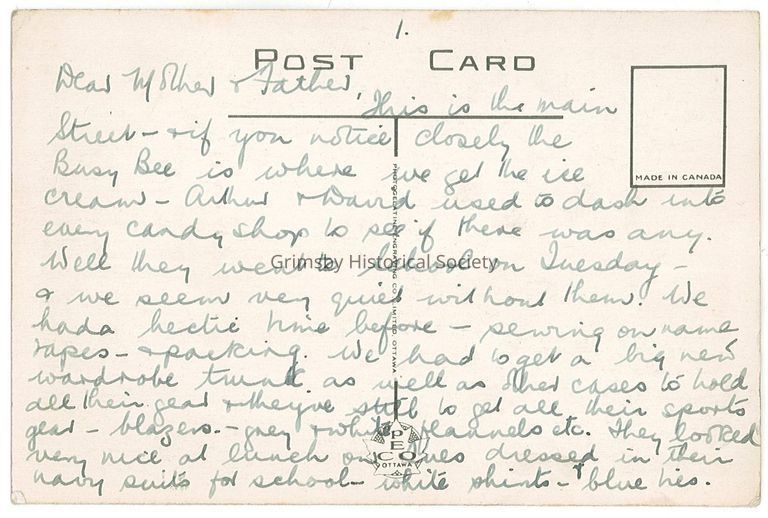 1.
POST CARD
Dear Mother & Father,
This is the main
Street - & if you notice closely the
Busy Bee is where we get the ice
cream - Arthur & David used to dash into
every candy shop to see if there was any.
Well they went to school on Tuesday -
& we seem very quiet without them. We
had a hectic time before - sewing on name
tapes - & packing. We had to get a big new
wardrobe trunk as well as other cases to hold
all their gear & they've still to get all their sports
gear - blazers. - grey & white flannels etc. They looked
very nice at lunch on Tues dressed in their
navy suits for school - white shirts - & blue ties.
MADE IN CANADA
PHOTOGELATINE ENGRAVING CO. LIMITED OTTAWA
PECO
OTTAWA
Grimsby Historical Society